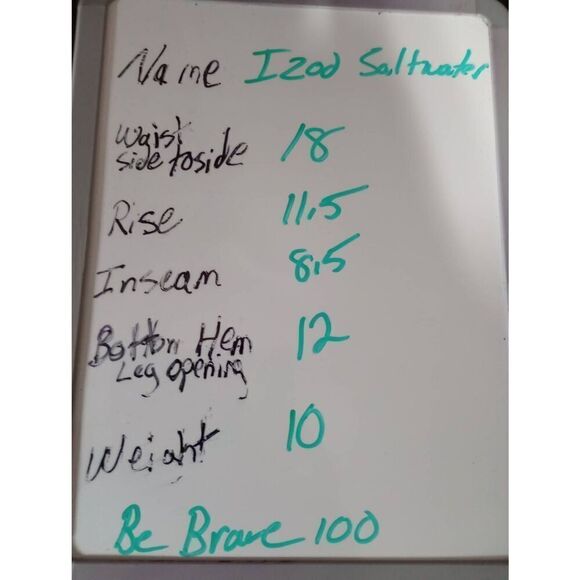 Name Izod Saltwater
Waist
side to side 18
Rise 11.5
Inseam 8.5
Bottom Hem 12
Leg opening
Weight 10
Be Brave 100